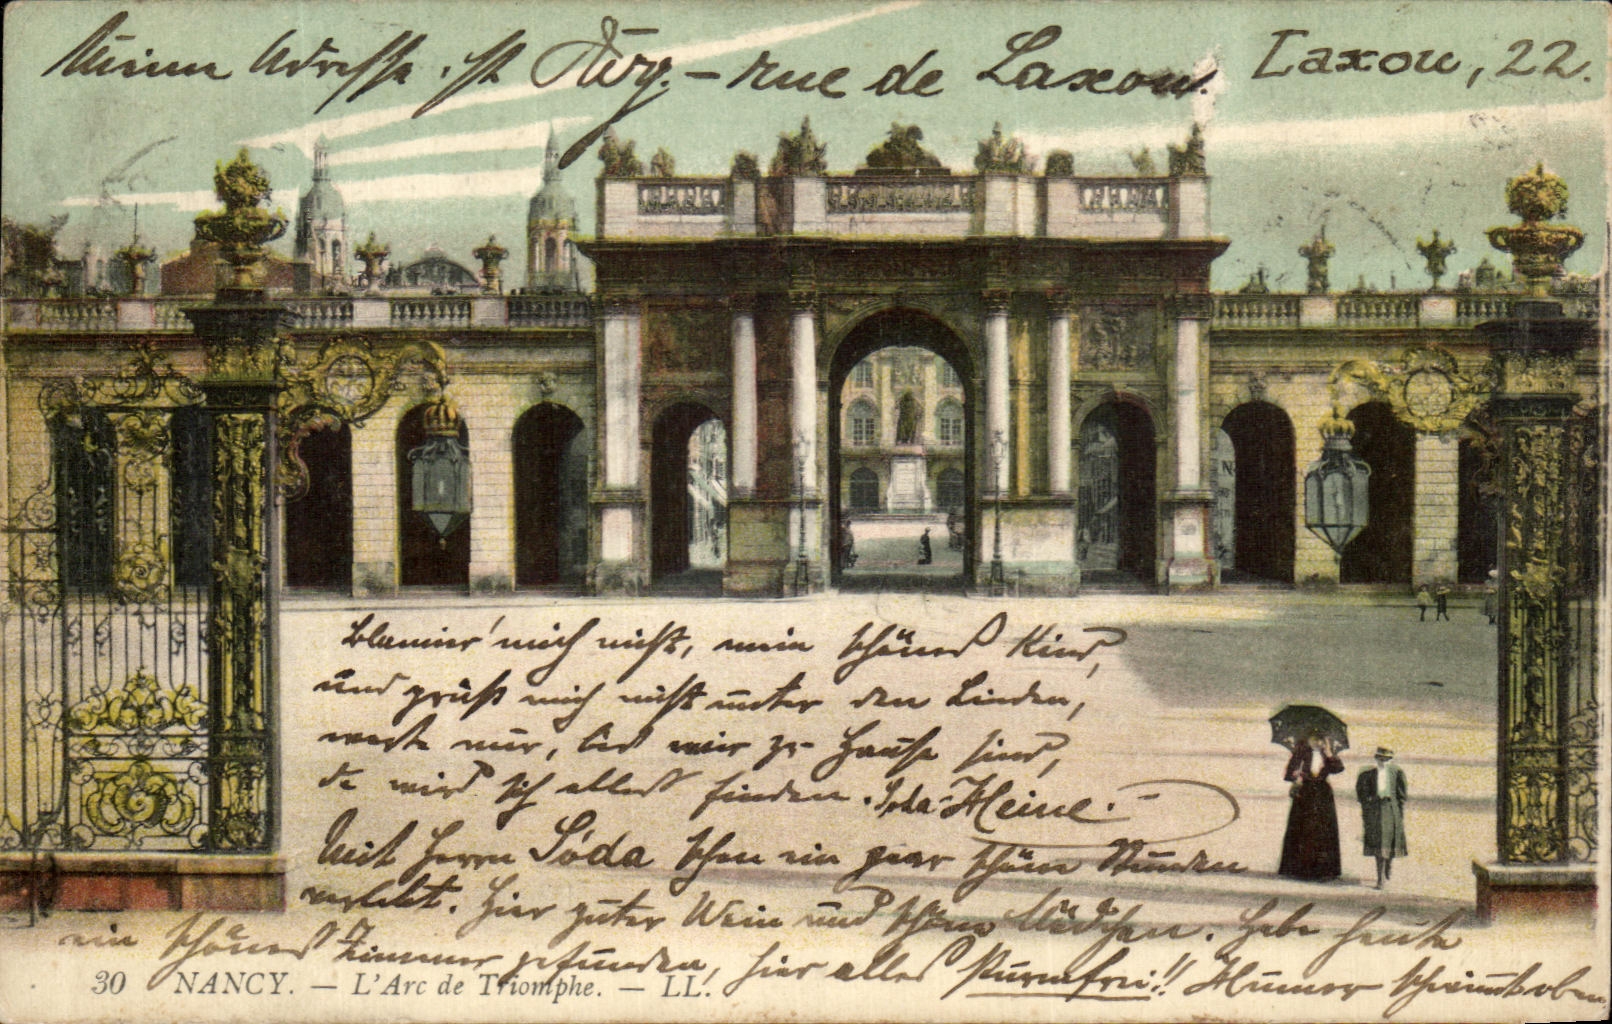 Meine Adresse ist Nrg. – rue de Laxou. Laxou, 22.
Blamier' mich nicht, mein schönes Kind,
und grüß mich nicht unter den Linden,
warte nur, bis wir zu Hause sind,
da wird sich alles finden. Soda-Heine.–
Mit Herrn Sóda schon ein paar schöne Stunden
verlebt. Hier guter Wein und schöne Mädchen. Habe heute
ein schönes Zimmer gefunden, hier alles sturmfrei!! Humor scheint oben
30 NANCY. — L'Arc de Triomphe. — LL.